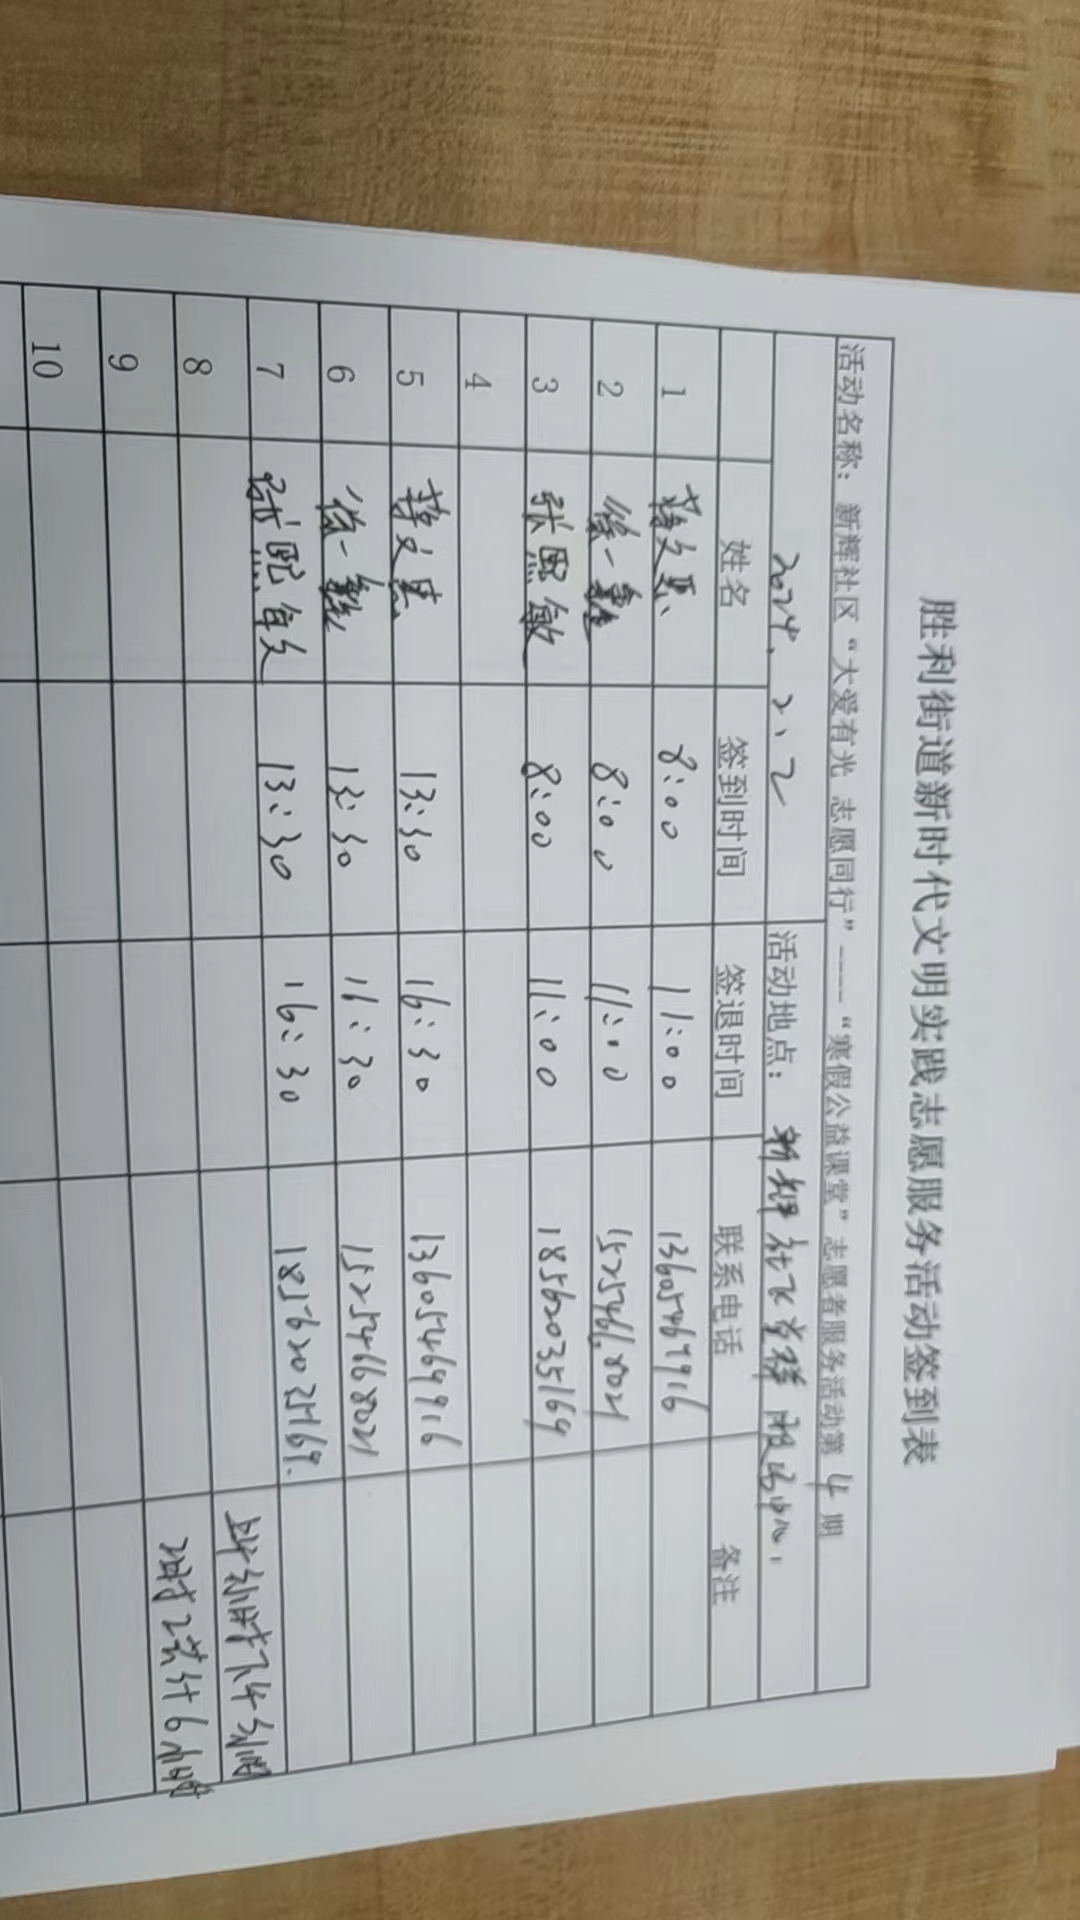 胜利街道新时代文明实践志愿服务活动签到表
活动名称：新辉社区“大爱有光 志愿同行”----“寒假公益课堂”志愿者服务活动第 4 期
2024.2.2 活动地点：新辉社区党群服务中心
姓名 签到时间 签退时间 联系电话 备注
1 8:00 11:00 13605469916
2 徐一鑫 8:00 11:00 15254668021
3 张熙敏 8:00 11:00 18562035169
4
5 13:30 16:30 13605469916
6 徐一鑫 13:30 16:30 15254668021
7 张熙敏 13:30 16:30
8
9 共计6小时
10